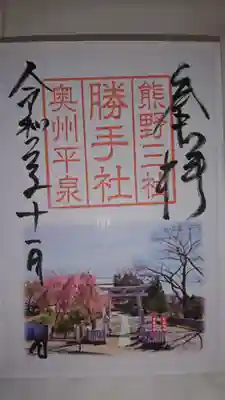 奉拝
熊野三社
勝手社
奥州平泉
令和 年十一月 日